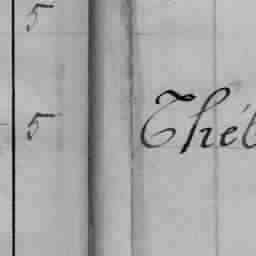 5
5 Thé